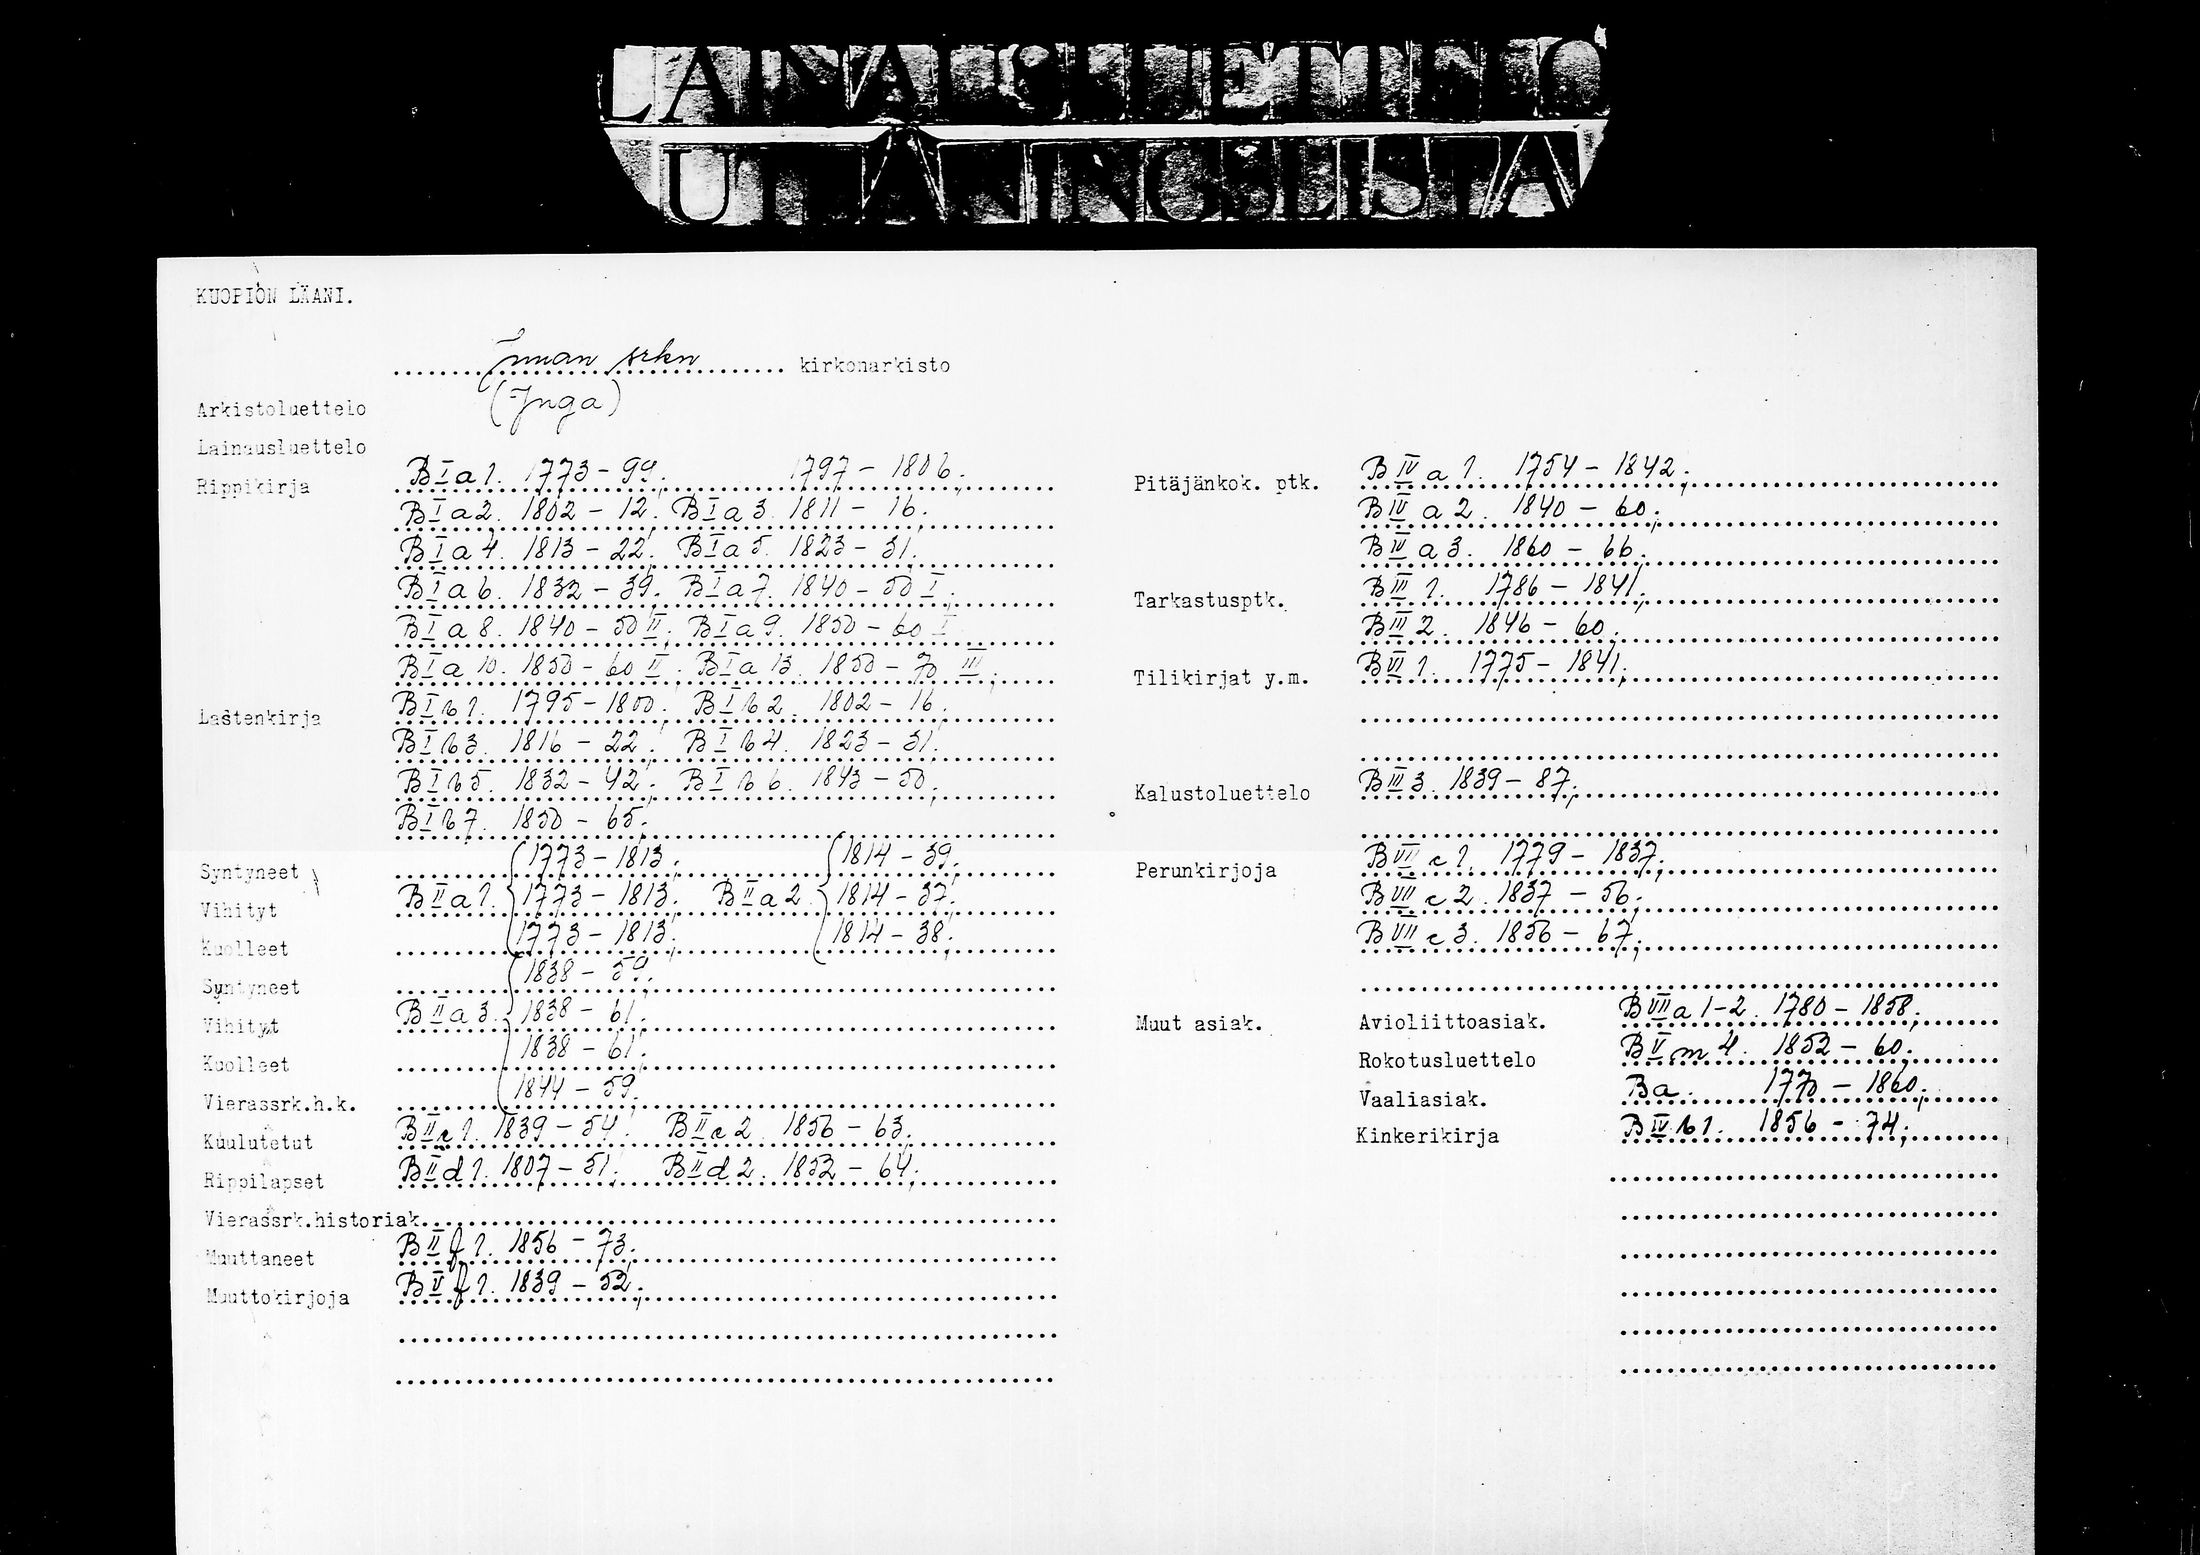 LAINAUSLUETTELO
UTLÅNINGSLISTA
KUOPION LÄÄNI.
Iman srkn kirkonarkisto
(Inga)
Arkistoluettelo
Lainausluettelo
Rippikirja B I a 1. 1773-99; 1797-1806;
B I a 2. 1802-12; B I a 3. 1811-16;
B I a 4. 1813-22; B I a 5. 1823-31;
B I a 6. 1832-39; B I a 7. 1840-50 I;
B I a 8. 1840-50 II; B I a 9. 1850-60 I
B I a 10. 1850-60 II; B I a 13. 1850-70 III;
Lastenkirja B I b 1. 1795-1800; B I b 2. 1802-16;
B I b 3. 1816-22; B I b 4. 1823-31;
B I b 5. 1832-42; B I b 6. 1843-50;
B I b 7. 1850-65;
Syntyneet 1773-1813; 1814-39;
Vihityt B II a 1. 1773-1813; B II a 2. 1814-37;
Kuolleet 1773-1813; 1814-38;
Syntyneet 1838-59;
Vihityt B II a 3. 1838-61;
Kuolleet 1838-61;
Vierassrk.h.k. 1844-59;
Kuulutetut B II c 1. 1839-54; B II c 2. 1856-63;
Rippilapset B II d 1. 1807-51; B II d 2. 1852-64;
Vierassrk.historiak.
Muuttaneet B II f 1. 1856-73;
Muuttokirjoja B V f 1. 1839-52;
Pitäjänkok. ptk. B IV a 1. 1754-1842;
B IV a 2. 1840-60;
B IV a 3. 1860-66;
Tarkastusptk. B III 1. 1786-1841;
B III 2. 1846-60;
Tilikirjat y.m. B VI 1. 1775-1841;
Kalustoluettelo B III 3. 1839-87;
Perunkirjoja B VII c 1. 1779-1837;
B VII c 2. 1837-56;
B VII c 3. 1856-67;
Muut asiak. Avioliittoasiak. B VII a 1-2. 1780-1858;
Rokotusluettelo B V m 4. 1852-60;
Vaaliasiak. Ba. 1770-1860;
Kinkerikirja B IV b 1. 1856-74;